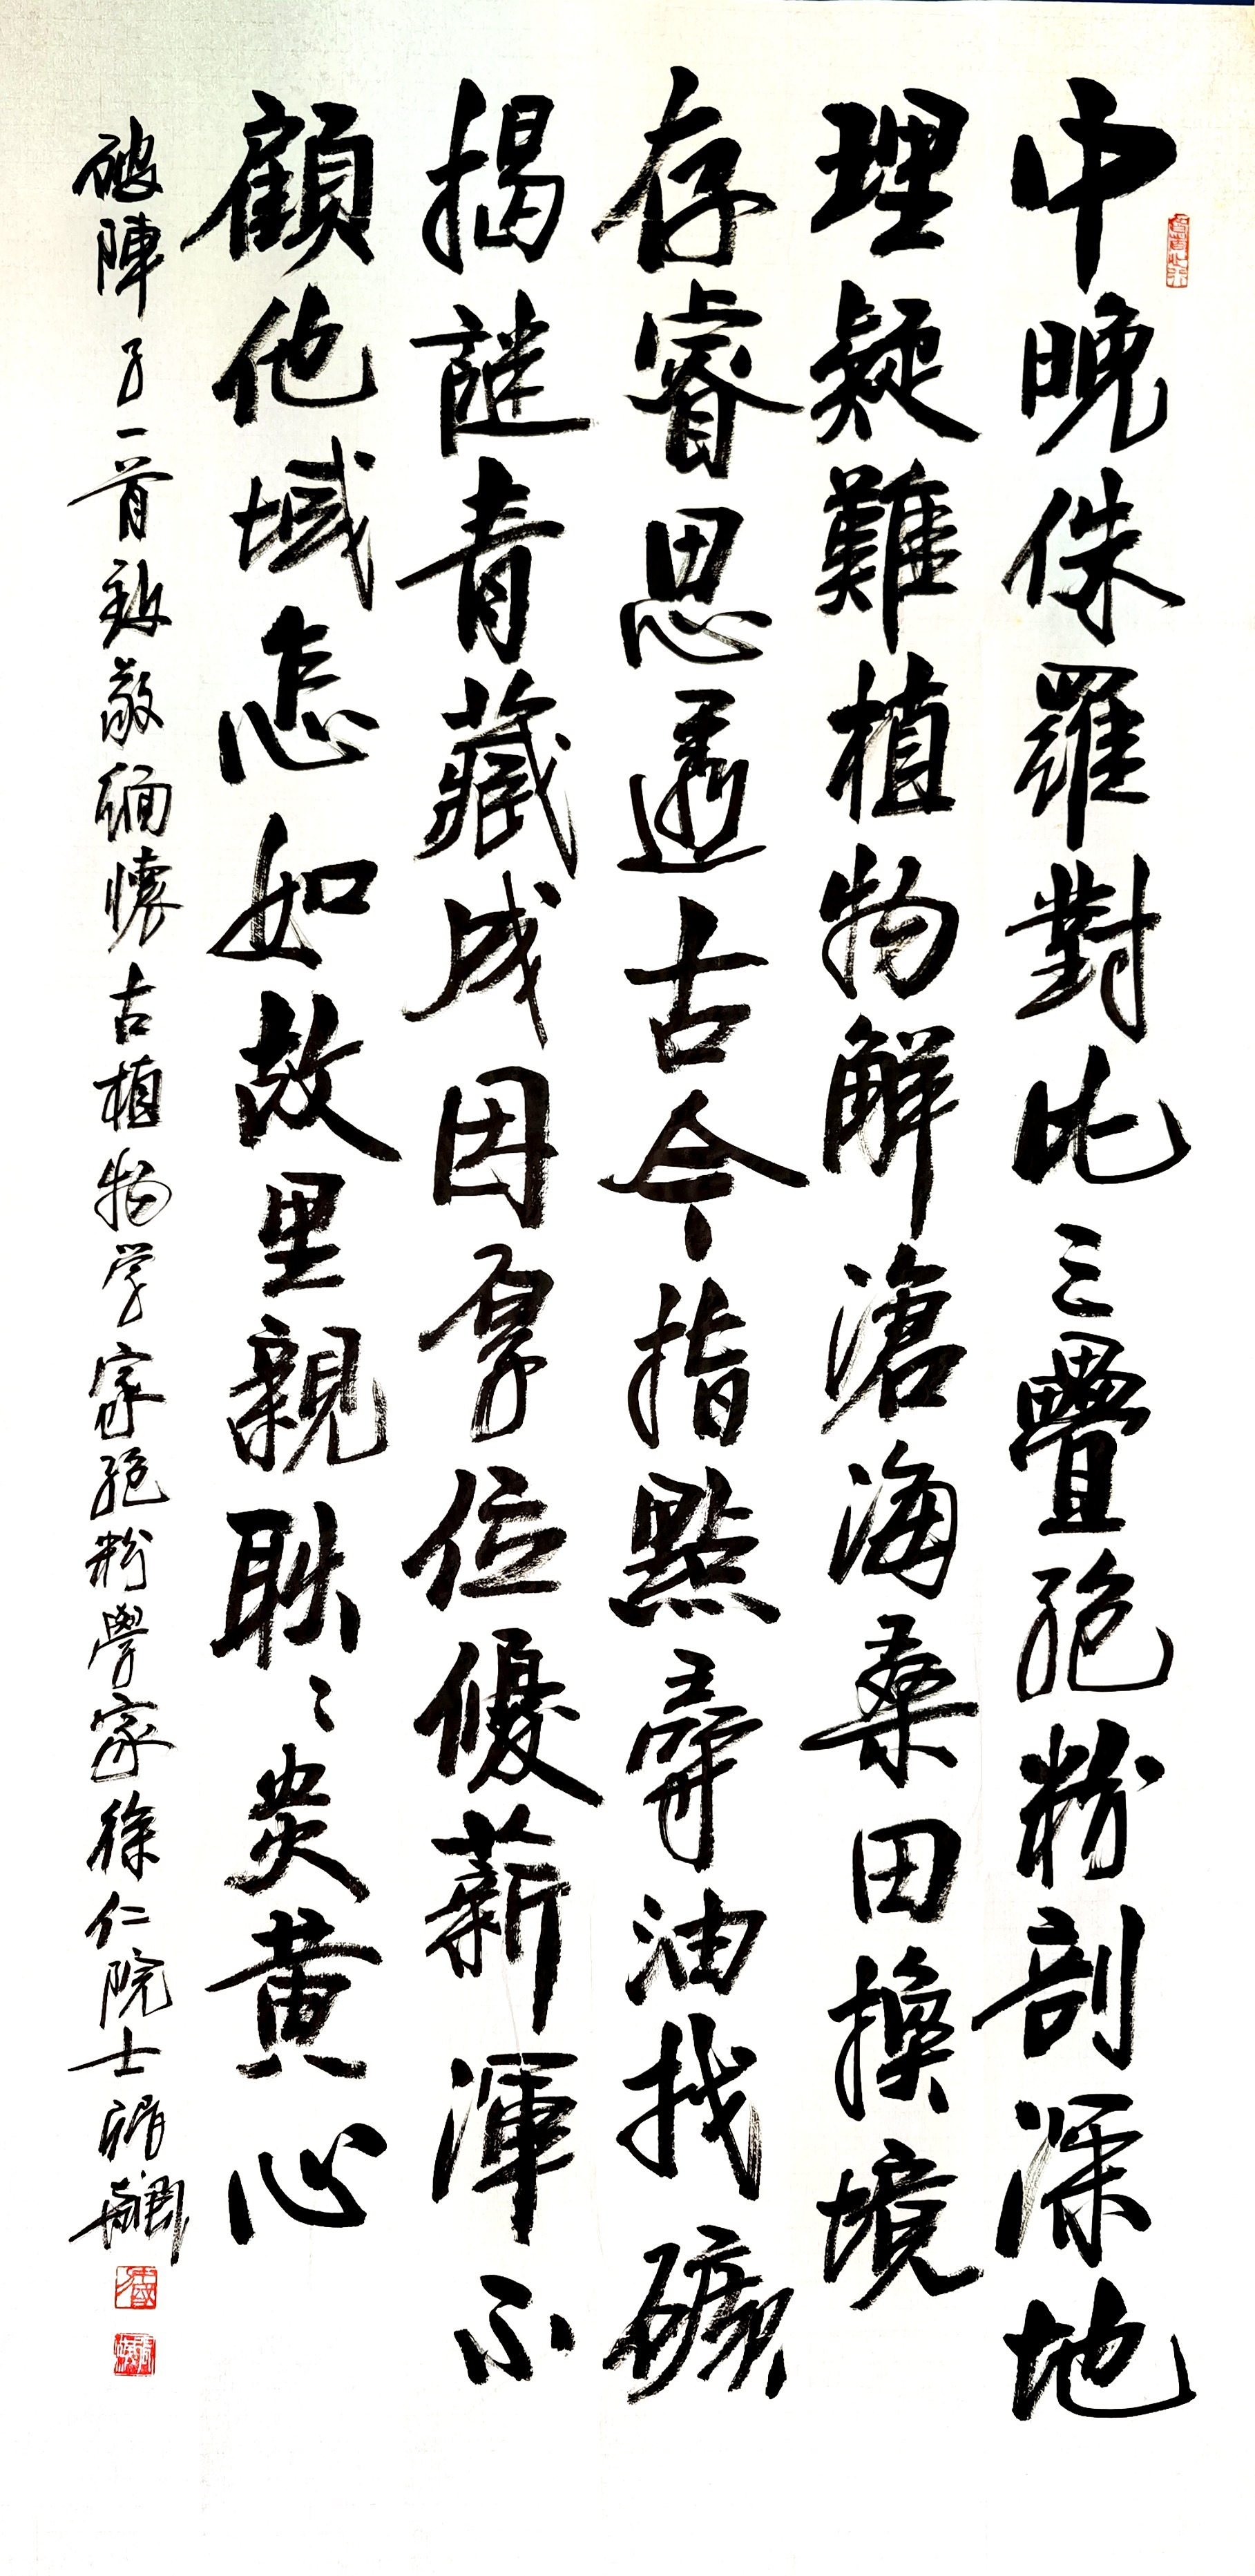 中晚侏羅對比三疊孢粉剖深地
理疑難植物解滄海桑田換境
存睿思透古今指點牽油找礦
揭謎青藏成因厚位優薪渾不
顧他域怎如故里親耿〻炎黄心
破陣子一首致敬緬懷古植物学家孢粉學家徐仁院士